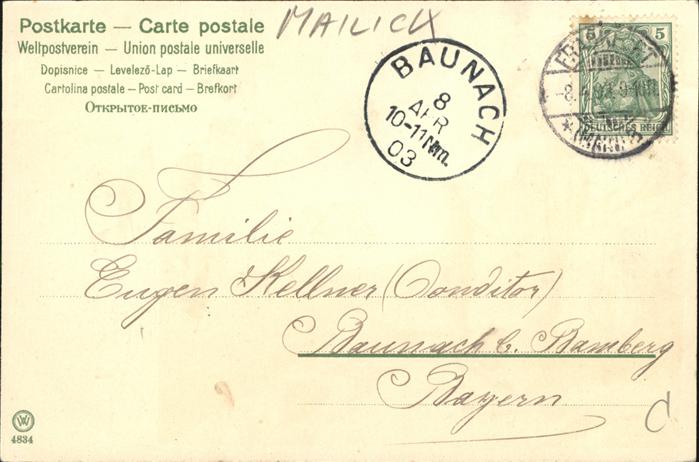 Postkarte — Carte postale
Weltpostverein — Union postale universelle
Dopisnice — Levelező-Lap — Briefkaart
Cartolina postale — Post card — Brefkort
Открытое-письмо
MAILICK
BAUNACH
8
APR
10-11 Nm.
03
5
DEUTSCHES REICH
Familie
Eugen Kellner (Conditor)
Baunach b. Bamberg
Bayern
C
W
4834